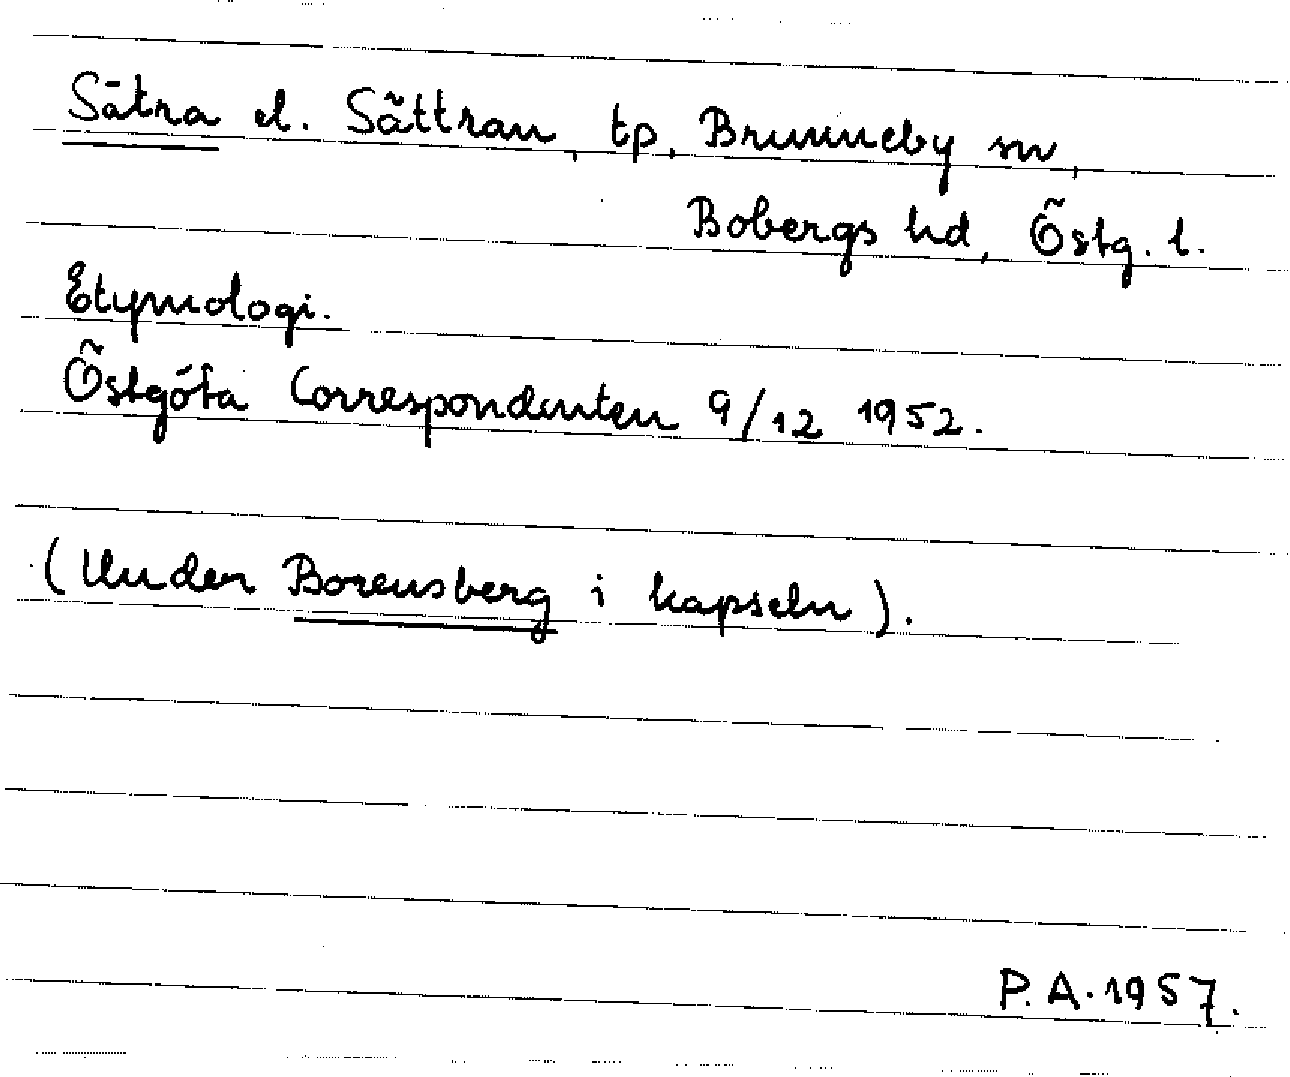 Sätra el. Sättran, tp, Brunneby sn,
Bobergs hd, Östg. l.
Etymologi.
Östgöta Correspondenten 9/12 1952.
(Under Borensberg i kapseln).
P. A. 1957.